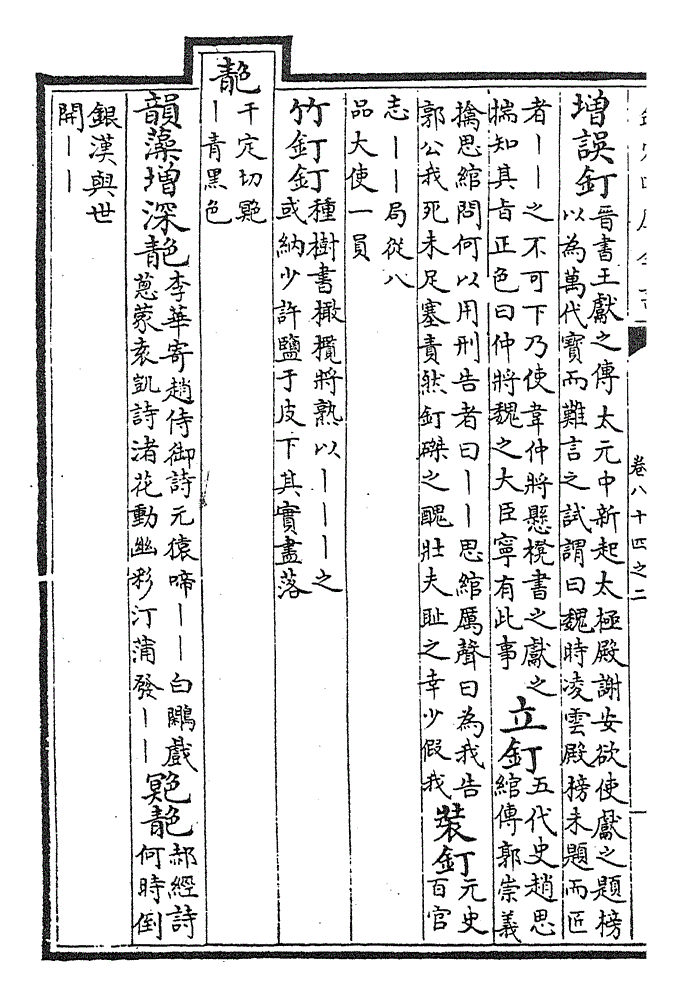 卷八十四之二
一
增誤釘
晉書王獻之傳太元中新起太極殿謝安欲使獻之題榜
以為萬代寶而難言之試謂曰魏時凌雲殿榜未題而匠
者丨丨之不可下乃使韋仲將懸櫈書之獻之
揣知其旨正色曰仲將魏之大臣寧有此事
立釘
五代史趙思
綰傳郭崇義
擒思綰問何以用刑告者曰丨丨思綰厲聲曰為我告
郭公我死未足塞責然釘磔之醜壯夫恥之幸少假我
裝釘
元史
百官
志丨丨局從八
品大使一員
竹釘釘
種樹書橄欖將熟以丨丨丨之
或納少許鹽于皮下其實盡落
靘
千定切䒌
丨青黑色
韻藻增深靘
李華寄趙侍御詩元猿啼丨丨白鷴戲
蔥蒙袁凱詩渚花動幽彩汀蒲發丨丨
䒌靘
郝經詩
何時倒
銀漢與世
開丨丨